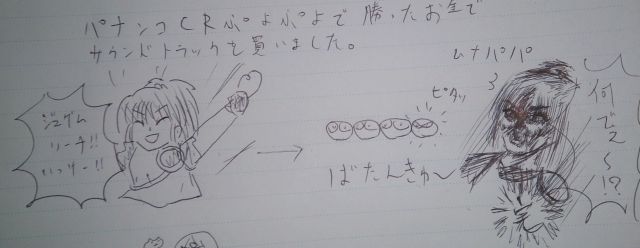 パチンコCRぷよぷよで勝ったお金で
サウンドトラックを買いました。
ジュゲム
リーチ!!
いっけー!!
ピタッ
ばたんきゅ〜
ムナパパパ
何でえ〜!?